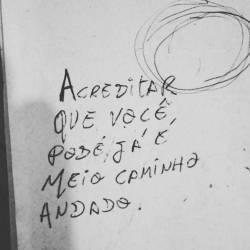 ACREDITAR
QUE VOCÊ,
PODE, JÁ É
MEIO CAMINHO
ANDADO.